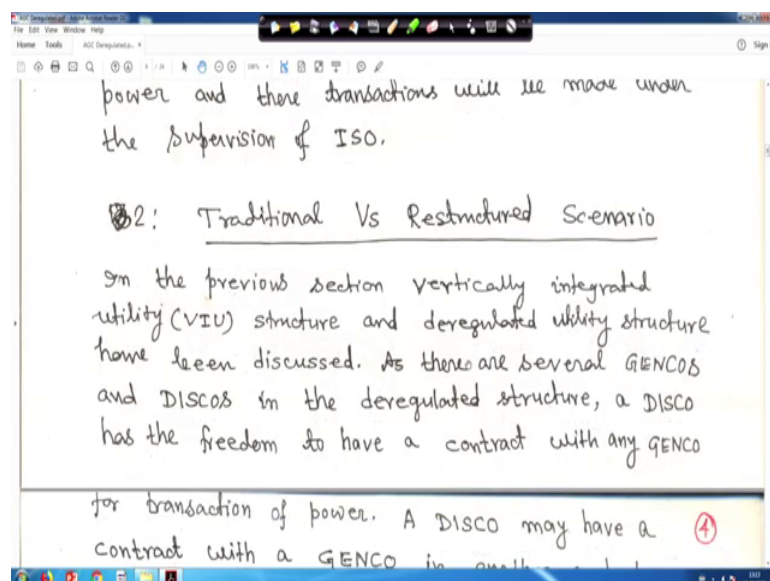 AGC Deregulated.pdf - Adobe Acrobat Reader DC
File Edit View Window Help
Home Tools AGC Deregulated.p... × Sign
power and there transactions will be made under
the supervision of ISO.
2: Traditional Vs Restructured Scenario
In the previous section vertically integrated
utility (VIU) structure and deregulated utility structure
have been discussed. As there are several GENCOS
and DISCOS in the deregulated structure, a DISCO
has the freedom to have a contract with any GENCO
for transaction of power. A DISCO may have a
4
contract with a GENCO in